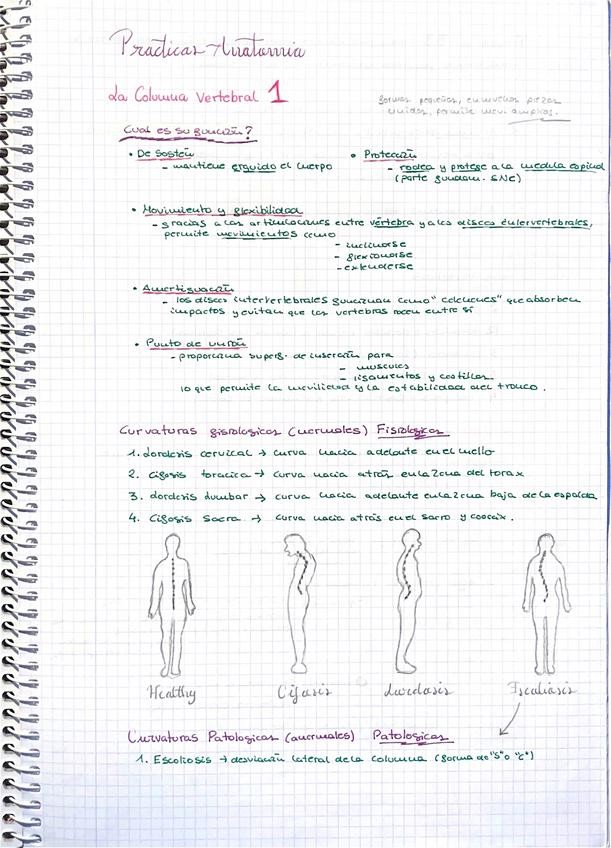 Prácticas Anatomia
La Columna Vertebral 1
formas pequeñas, en muchas piezas
unidas, permite movi. amplios.
Cual es su función?
• De Sostén
- mantiene erguido el cuerpo
• Protección
- rodea y protege a la medula espinal
(parte fundam. SNC)
• Movimiento y flexibilidad
- gracias a las articulaciones entre vértebra y a los discos intervertebrales,
permite movimientos como
- inclinarse
- flexionarse
- extenderse
• Amortiguación
- los discos intervertebrales funcionan como "colchones" que absorben
impactos y evitan que las vertebras rocen entre sí
• Punto de unión
- proporciona superf. de inserción para
- musculos
- ligamentos y costillas
lo que permite la movilidad y la estabilidad del tronco.
Curvaturas fisiologicas (normales) Fisiologicas
1. lordosis cervical → curva hacia adelante en el cuello
2. Cifosis toracica → curva hacia atrás en la zona del torax
3. lordosis lumbar → curva hacia adelante en la zona baja de la espalda
4. Cifosis Sacra → curva hacia atrás en el sacro y coccix.
Healthy Cifosis Lordosis Escoliosis
Curvaturas Patologicas (anormales) Patologicas
1. Escoliosis → desviación lateral de la columna (forma de "S" o "C")